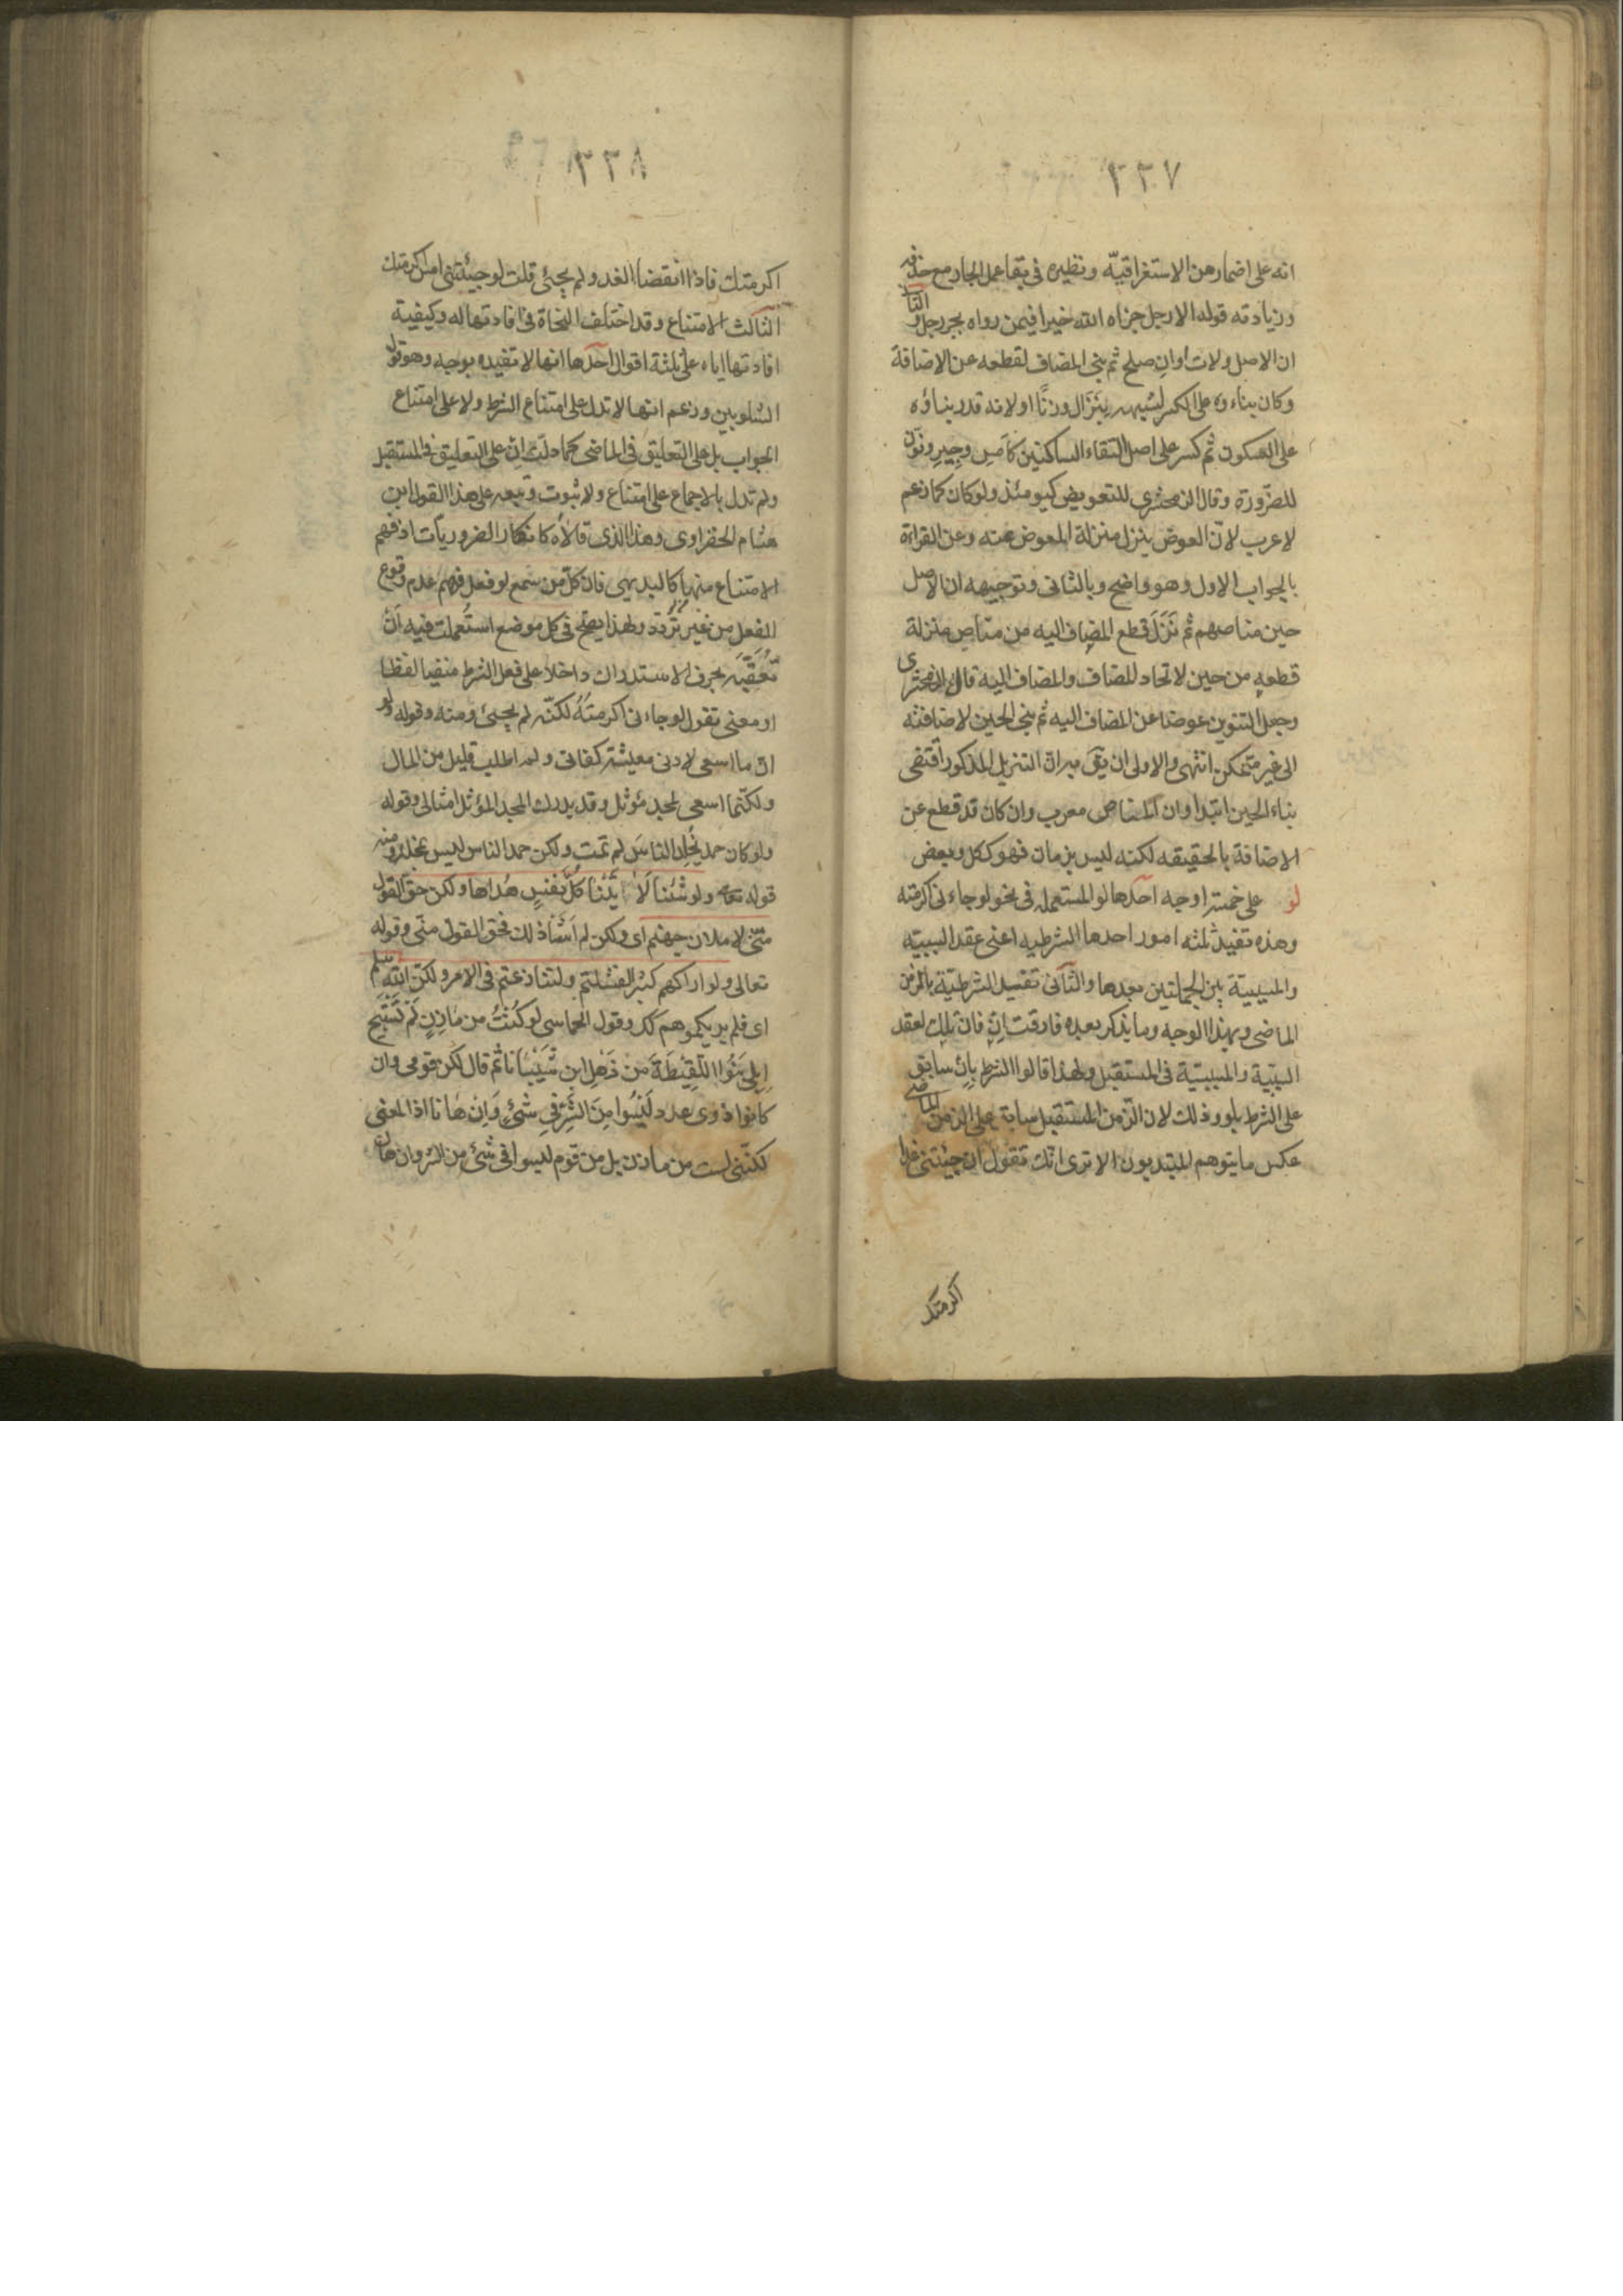 ٣٣٧
انه على اضمار من الاستغراقيّه ونظيره فى بقا عمل الجار مع حذفه
وزيادته قوله الا رجل جزاه الله خيرا فيمن رواه بجر رجل والثانى
ان الاصل ولات أوان صلح ثم بنى المضاف لقطعه عن الاضافة
وكان بناءوه على الكسر لشبهه بنَزال وزنًا او لانه قدر بناؤه
على السكون ثم كسر على اصل التقاء الساكنين كامسِ وجيرِ ونوّن
للضّرورة وقال الزمخشرى للتعويض كيومئذ ولو كان كما زعم
لاعرب لانّ العوض ينزل منزلة المعوض عنه وعن القراءة
بالجواب الاول وهو واضح وبالثانى وتوجيهه ان الاصل
حين مناصهم ثم نَزَّلَ قطع المضاف اليه من مناص منزلة
قطعه من حين لاتحاد المضاف والمضاف اليه قاله الزمخشرى
وجعل التنوين عوضا عن المضاف اليه ثم بنى الحين لاضافته
الى غير متمكن انتهى والاولى ان يقى ميران التنزيل المذكور اقتضى
بناء الحين ابتدا وان المناص معرب وان كان قد قطع عن
الاضافة بالحقيقه لكنه ليس بزمان فهو ككل وبعض
لو على خمسة اوجه احدها لو المستعمله فى نحو لو جاءنى اكرمته
وهذه تفيد ثلثه امور احدها الشرطيه اعنى عقد السببيّه
والمسببيّة بين الجملتين بعدها والثانى تقييد الشرطيّة بالزمن
الماضى وبهذا الوجه وما يذكر بعده فارقت ان فان تلك لعقد
السببّية والمسببيّة فى المستقبل ولهذا قالوا الشرط بان سابق
على الشرط بلو وذلك لان الزّمن المستقبل سابق على الزمن الماضى
عكس ما يتوهم المبتديون الا ترى انّك تقول ان جئتنى غدا
اكرمتك
٣٣٨
اكرمتك فاذا انقضا الغد ولم يجئ قلت لو جيئتنى امس اكرمتك
الثالث الامتناع وقد اختلف النحاة فى افادتها له وكيفية
افادتها اياه على ثلثة اقوال احدها انها لا تفيده بوجه وهو قول
الشلوبين وزعم انها لا تدل على امتناع الشرط ولا على امتناع
الجواب بل على التعليق فى الماضى كما دلّت ان على التعليق فى المستقبل
ولم تدل بالاجماع على امتناع ولا ثبوت وتبعه على هذا القول ابن
هشام الخضراوى وهذا الذى قالاه كانكار الضروريّات اذ فهم
الامتناع منها كالبديهى فان كلّ من سمع لو فعل فهم عدم وقوع
الفعل من غير تردّد ولهذا يصحّ فى كل موضع استُعملت فيه اَنْ
تُعَقِّبَه بحرف الاستدراك داخلا على فعل الشرط منفيا لفظا
او معنى تقول لو جاءنى اكرمتهُ لكنّه لم يجئ ومنه وقوله ولو
انّ ما اسعى لادنى معيشة كفانى ولم اطلب قليل من المال
ولكنّما اسعى لمجد مؤثل وقد يدرك المجد المؤثل امثالى وقوله
ولو كان حمد يُخلِد الناسَ لم تمت ولكن حمد الناس ليس بمخلد ومنه
قوله تعه ولو شئنا لَاٰتَيْنا كلَّ نفسٍ هُداها ولكن حقّ القول
منّى لاملان جهنم اى ولكن لم اَشَأ ذلك فحق القول منّى وقوله
تعالى ولو اراكهم كثيرا لفشلتم ولتنازعتم فى الامر ولكنّ الله سلّم
اى فلم يريكموهم كك وقول الحماسى لو كُنْتُ من مَازنٍ لَمْ تَسْتَبِحْ
اِبلى بَنُوا اللّقِيْطَةَ من ذُهْلِ ابن شَيْبَانا ثم قال لكن قومى وان
كانوا ذوى عدد لَيْسُوا مِنَ الشّرِّ فى شَئٍ وَاِنْ هَانا اذ المعنى
لكنّنى لست من مازن بل من قوم ليسوا فى شئ من الشر وان هان